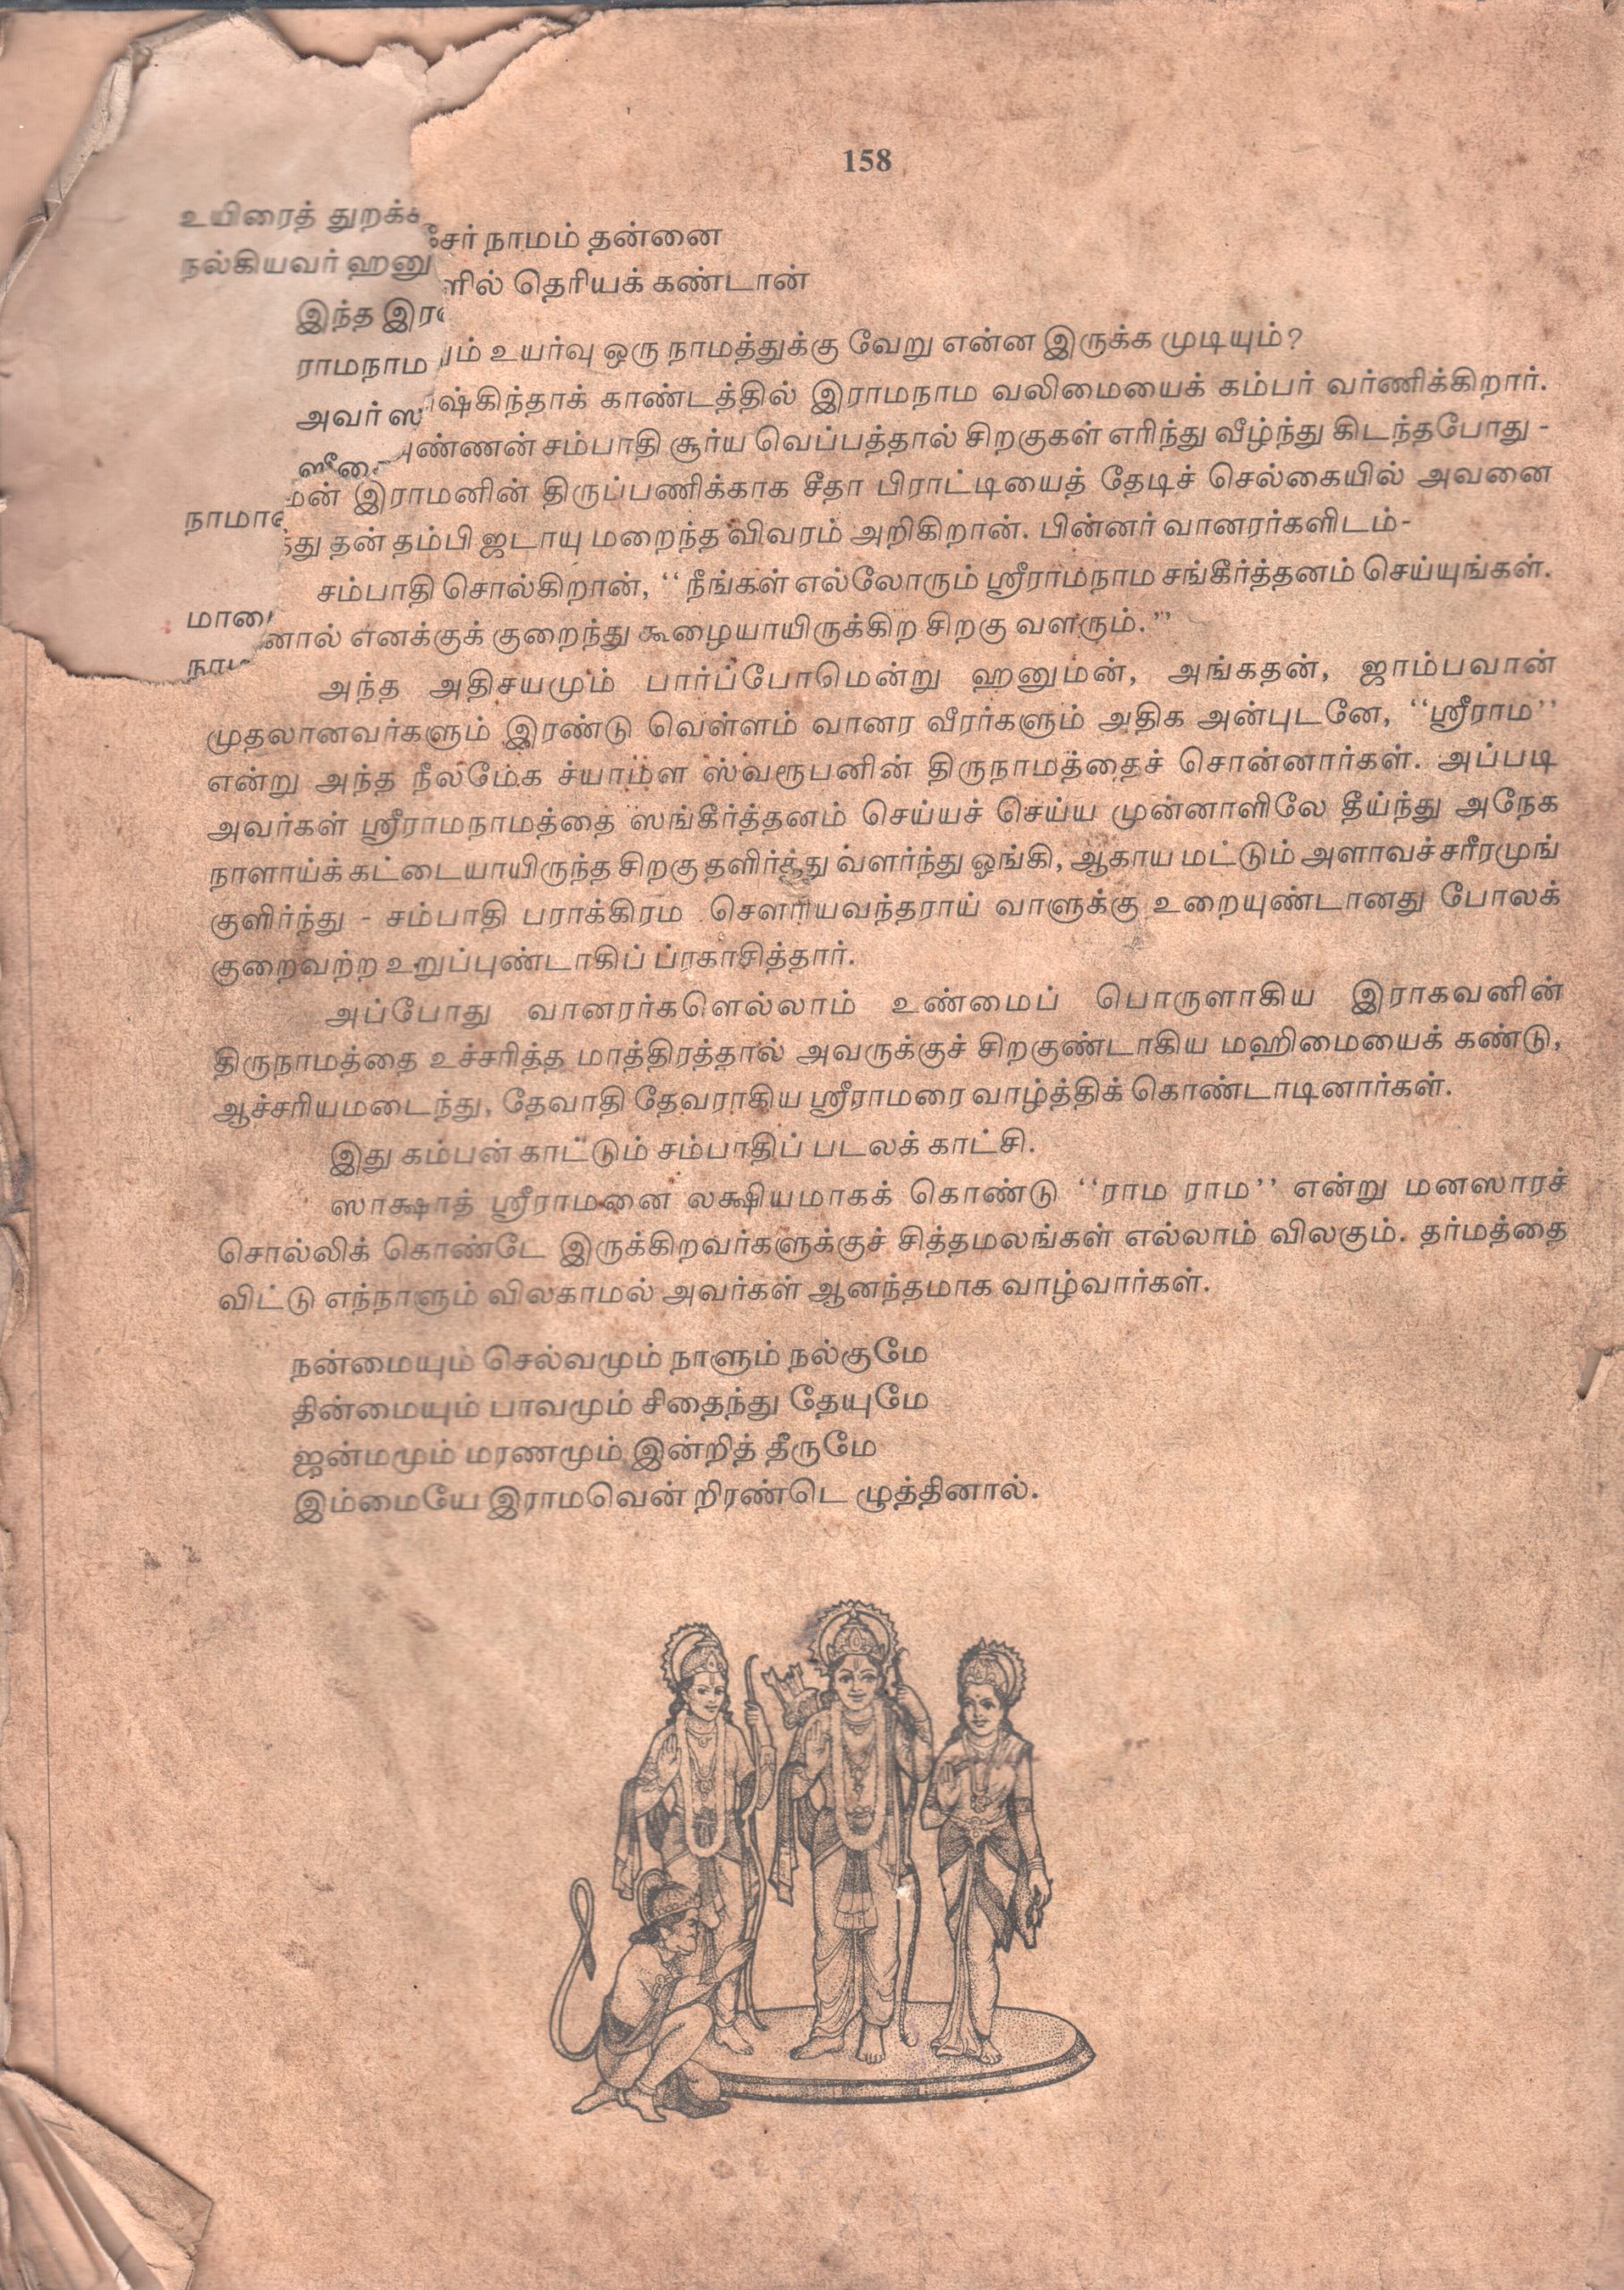 158
உயிரைத்
நல்கியவர்
இந்த
ராமநாம
அவர்
நாமம் தன்னை
தெரியக் கண்டான்
உயர்வு ஒரு நாமத்துக்கு வேறு என்ன இருக்க முடியும்?
காண்டத்தில் இராமநாம வலிமையைக் கம்பர் வர்ணிக்கிறார்.
சம்பாதி சூர்ய வெப்பத்தால் சிறகுகள் எரிந்து வீழ்ந்து கிடந்தபோது -
இராமனின் திருப்பணிக்காக சீதா பிராட்டியைத் தேடிச் செல்கையில் அவனை
தன் தம்பி ஜடாயு மறைந்த விவரம் அறிகிறான். பின்னர் வானரர்களிடம்-
சம்பாதி சொல்கிறான், ‘‘நீங்கள் எல்லோரும் ஸ்ரீராமநாம சங்கீர்த்தனம் செய்யுங்கள்.
எனக்குக் குறைந்து கூழையாயிருக்கிற சிறகு வளரும்.’’
அந்த அதிசயமும் பார்ப்போமென்று ஹனுமன், அங்கதன், ஜாம்பவான்
முதலானவர்களும் இரண்டு வெள்ளம் வானர வீரர்களும் அதிக அன்புடனே, ‘‘ஸ்ரீராம’’
என்று அந்த நீலமேக ச்யாமள ஸ்வரூபனின் திருநாமத்தைச் சொன்னார்கள். அப்படி
அவர்கள் ஸ்ரீராமநாமத்தை ஸங்கீர்த்தனம் செய்யச் செய்ய முன்னாளிலே தீய்ந்து அநேக
நாளாய்க் கட்டையாயிருந்த சிறகு தளிர்த்து வளர்ந்து ஓங்கி, ஆகாய மட்டும் அளாவச்சரீரமுங்
குளிர்ந்து - சம்பாதி பராக்கிரம சௌரியவந்தராய் வாளுக்கு உறையுண்டானது போலக்
குறைவற்ற உறுப்புண்டாகிப் ப்ரகாசித்தார்.
அப்போது வானரர்களெல்லாம் உண்மைப் பொருளாகிய இராகவனின்
திருநாமத்தை உச்சரித்த மாத்திரத்தால் அவருக்குச் சிறகுண்டாகிய மஹிமையைக் கண்டு,
ஆச்சரியமடைந்து, தேவாதி தேவராகிய ஸ்ரீராமரை வாழ்த்திக் கொண்டாடினார்கள்.
இது கம்பன் காட்டும் சம்பாதிப் படலக் காட்சி.
ஸாக்ஷாத் ஸ்ரீராமனை லக்ஷியமாகக் கொண்டு ‘‘ராம ராம’’ என்று மனஸாரச்
சொல்லிக் கொண்டே இருக்கிறவர்களுக்குச் சித்தமலங்கள் எல்லாம் விலகும். தர்மத்தை
விட்டு எந்நாளும் விலகாமல் அவர்கள் ஆனந்தமாக வாழ்வார்கள்.
நன்மையும் செல்வமும் நாளும் நல்குமே
தின்மையும் பாவமும் சிதைந்து தேயுமே
ஜன்மமும் மரணமும் இன்றித் தீருமே
இம்மையே இராமவென் றிரண்டெ ழுத்தினால்.